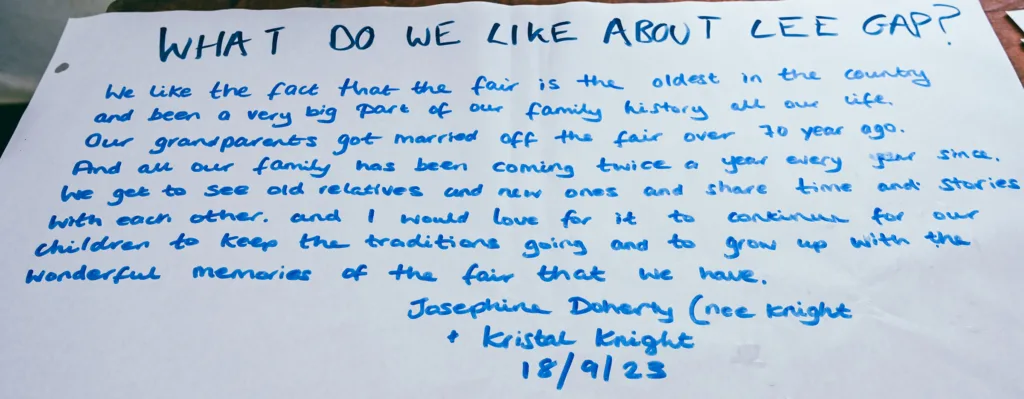 WHAT DO WE LIKE ABOUT LEE GAP?
We like the fact that the fair is the oldest in the country
and been a very big part of our family history all our life.
Our grandparents got married off the fair over 70 year ago.
And all our family has been coming twice a year every year since.
We get to see old relatives and new ones and share time and stories
with each other. and I would love for it to continue for our
children to keep the traditions going and to grow up with the
wonderful memories of the fair that we have.
Josephine Doherty (nee Knight
+ Kristal Knight
18/9/23